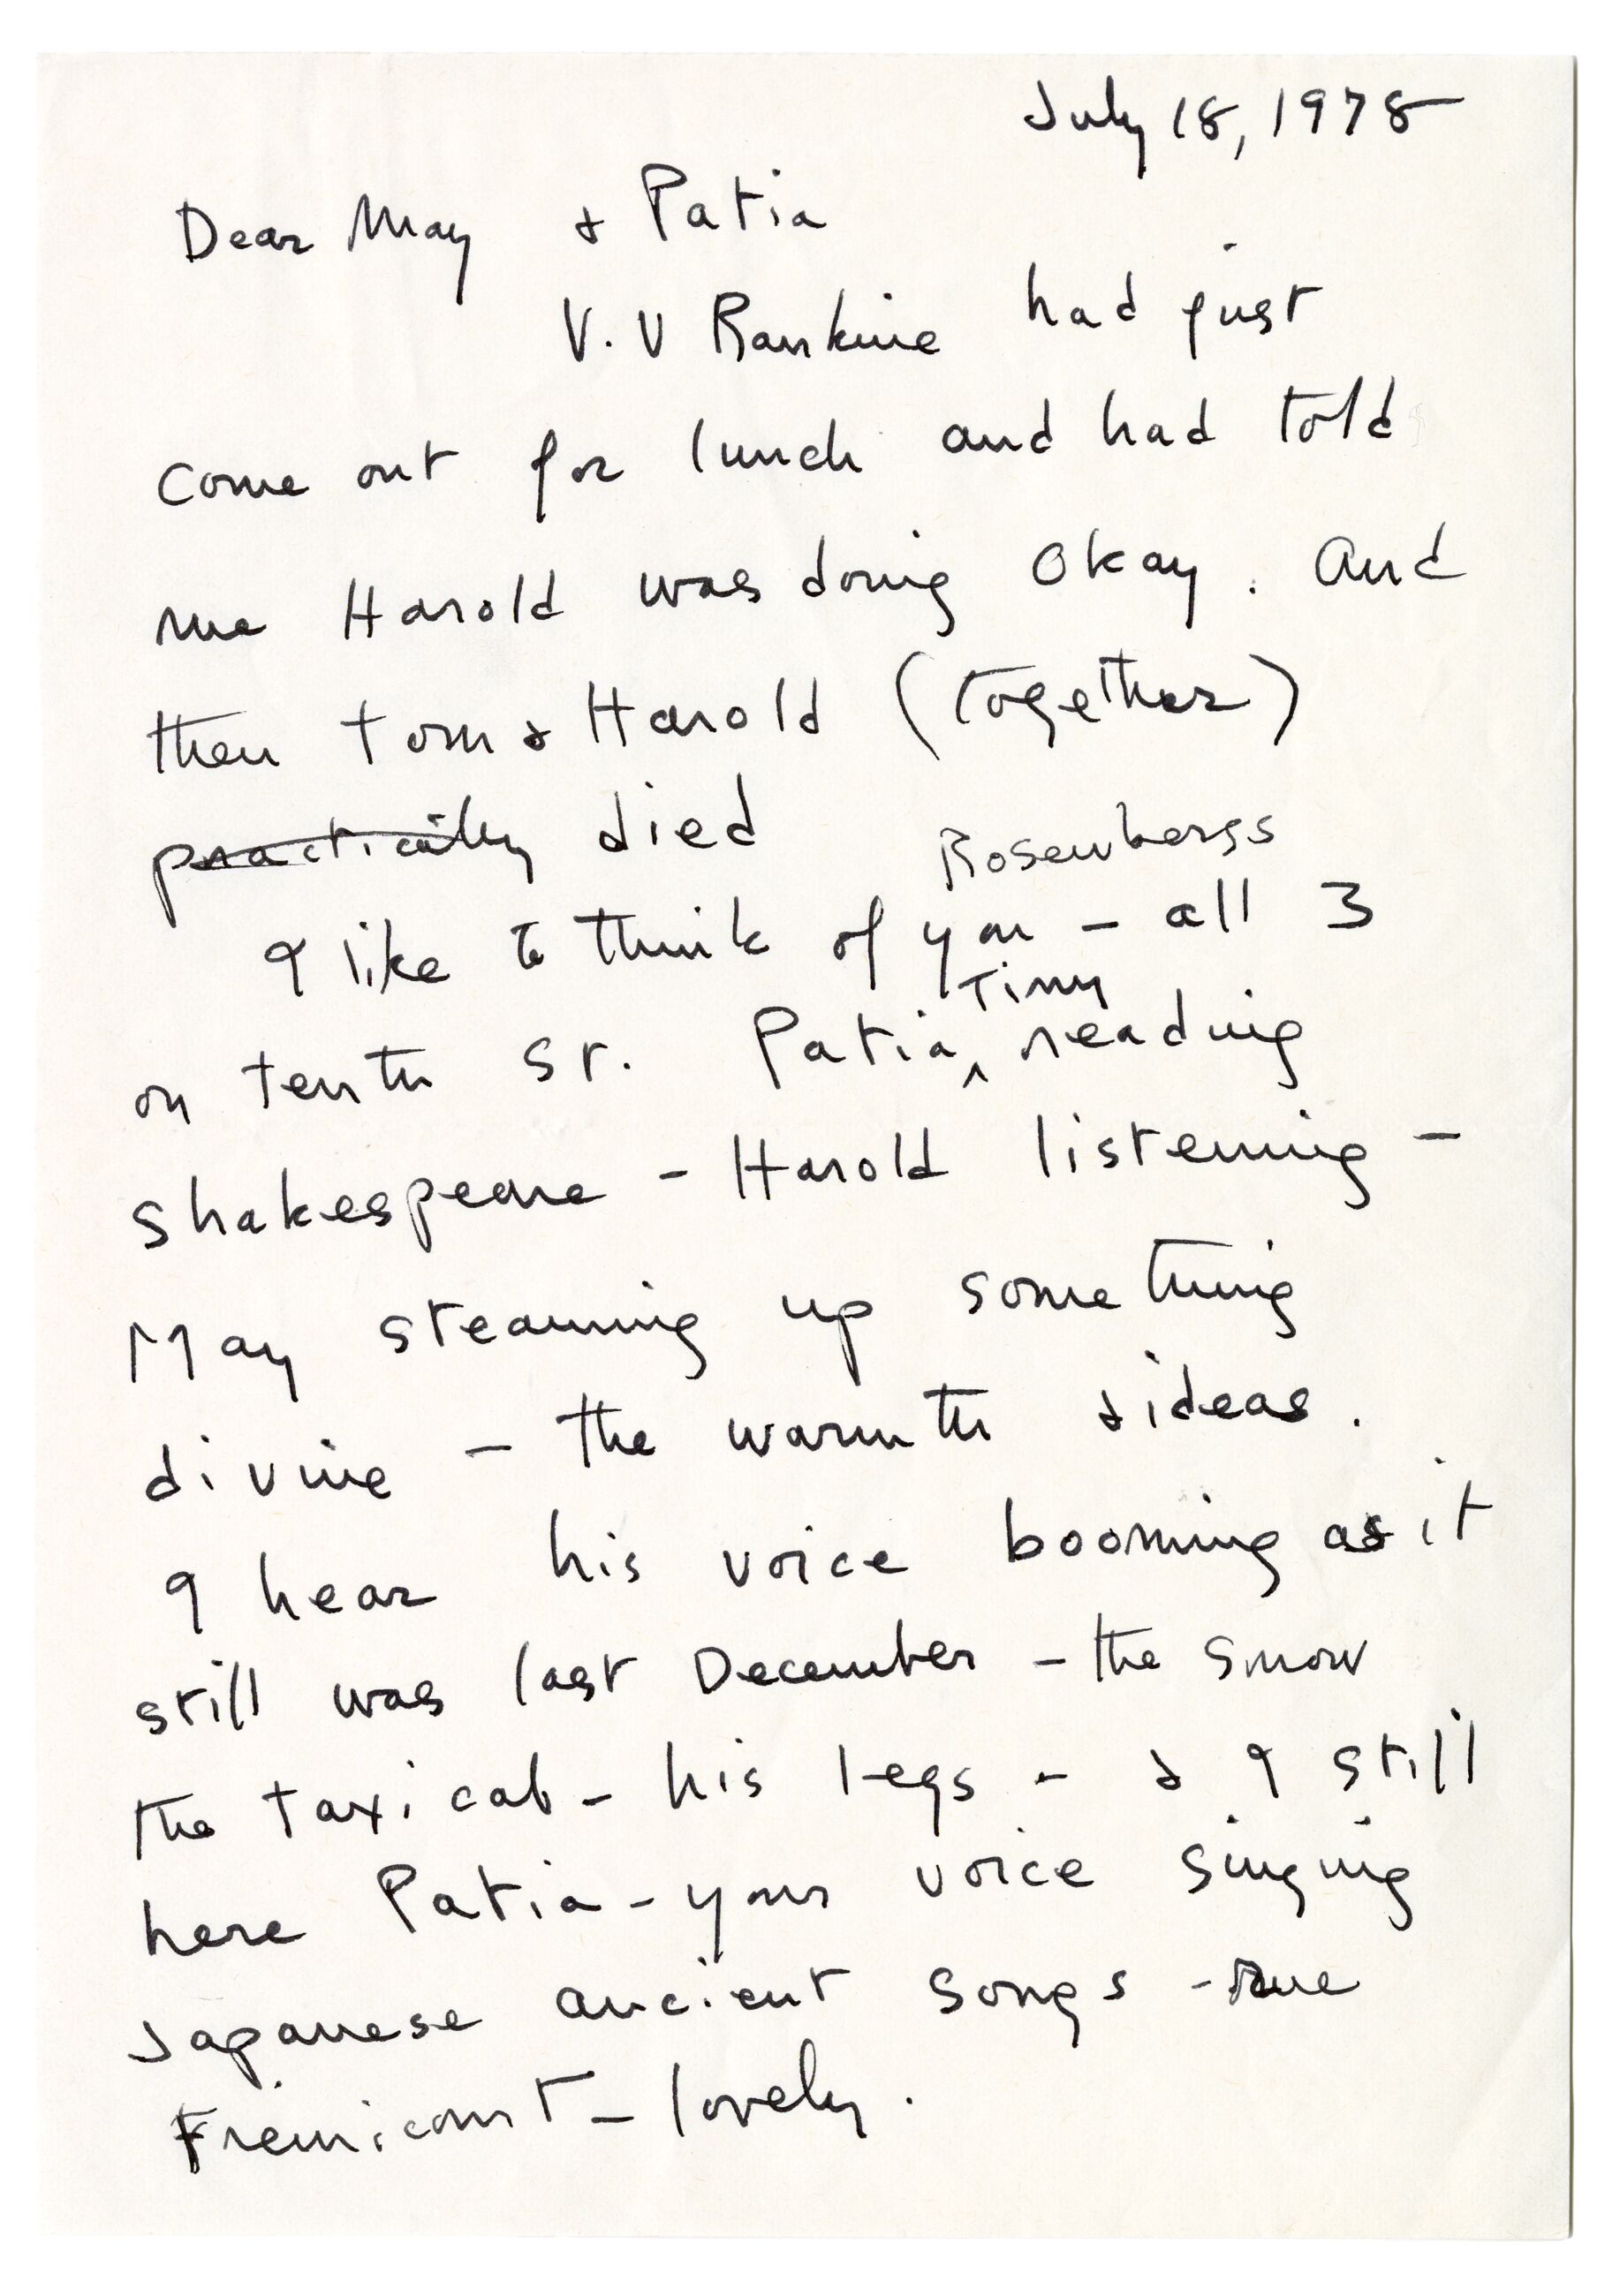 July 18, 1978
Dear May & Patia
V.V Rankine had just
come out for lunch and had told
me Harold was doing okay. And
then Tom & Harold (together)
practically died
Rosenbergs
I like to think of you - all 3
Tiny
on tenth St. Patia ^ reading
Shakespeare - Harold listening -
May steaming up something
divine - the warmth & ideas.
I hear his voice booming as it
still was last December - the snow
the taxi cab - his legs - & I still
here Patia - your voice singing
Japanese ancient songs - Rue
Fremicourt - lovely.